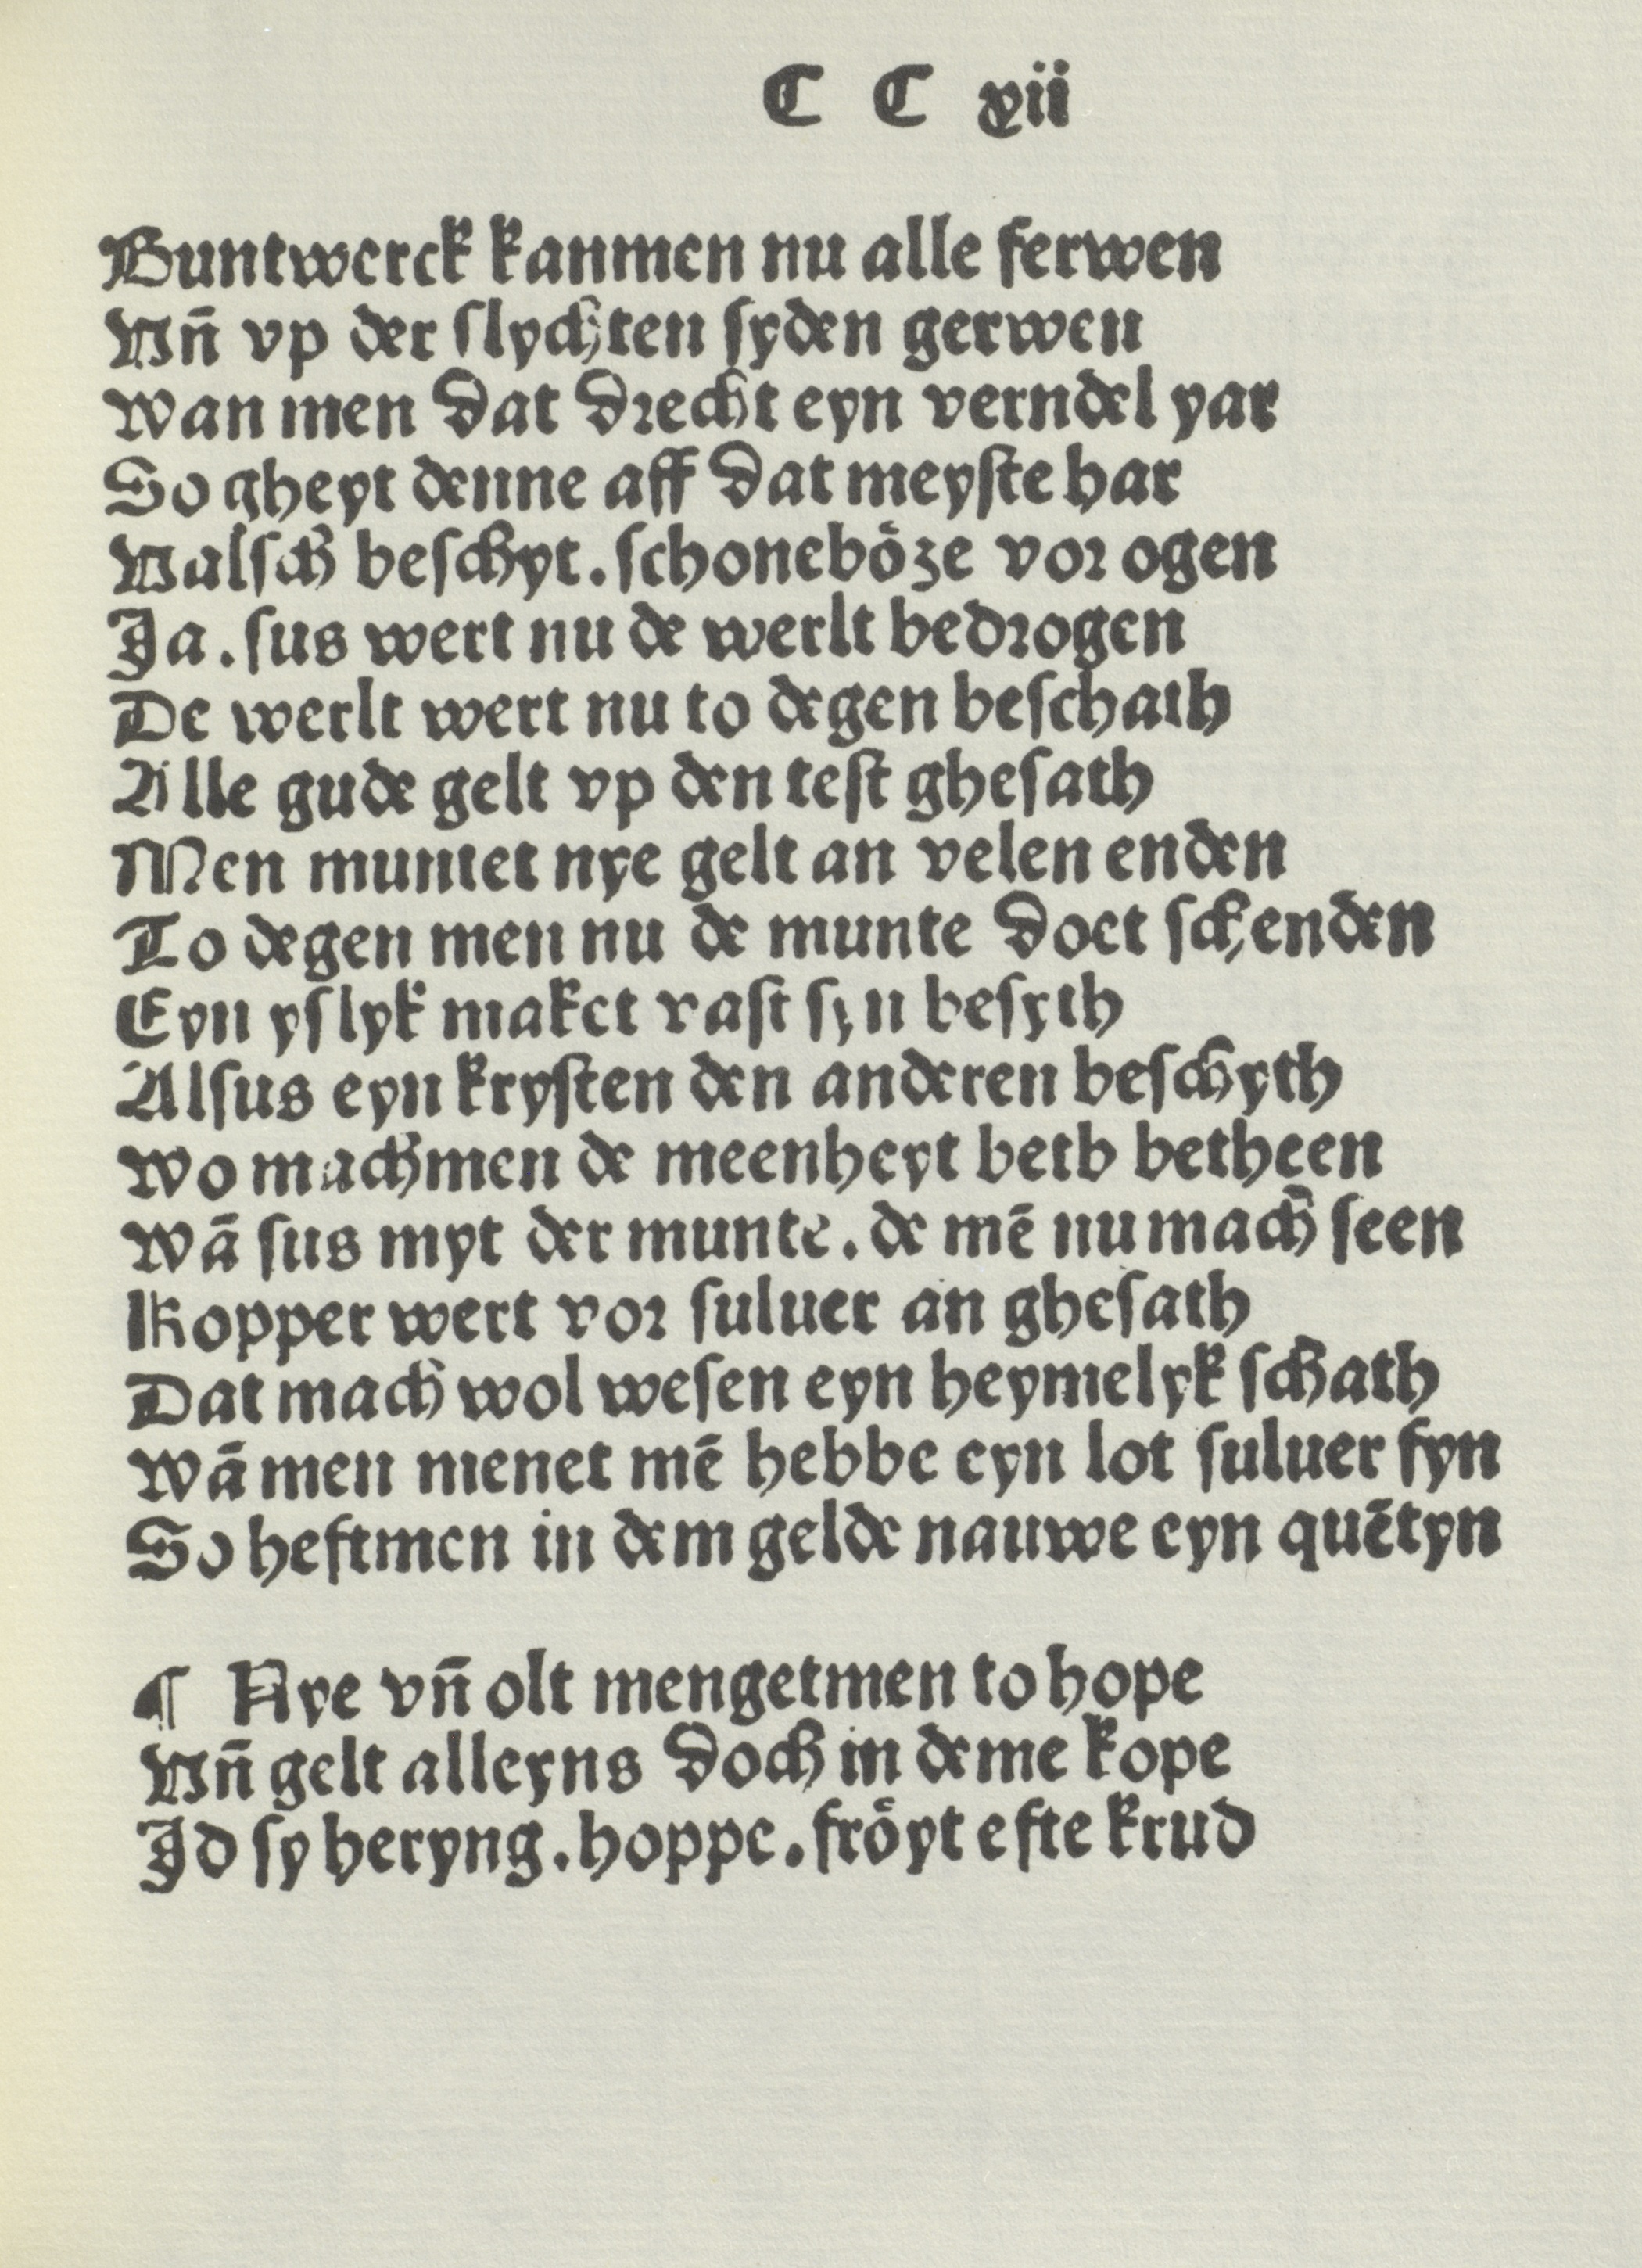 C C xii
Buntwerck kanmen nu alle ferwen
Vn̄ vp der ſlychten ſyden gerwen
Wan men dat drecht eyn verndel yar
So gheyt denne aff dat meyſte har
Valſch beſchyt. ſchoneboͤze vor ogen
Ja. ſus wert nu de werlt bedrogen
De werlt wert nu to degen beſchath
Alle gude gelt vp den teſt gheſath
Men muntet nye gelt an velen enden
To degen men nu de munte doet ſchenden
Eyn yſlyk maket vaſt ſyn beſyth
Alſus eyn kryſten den anderen beſchyth
Wo machmen de meenheyt beth betheen
Wā ſus myt der munte. de mē nu mach ſeen
Kopper wert vor ſuluer an gheſath
Dat mach wol weſen eyn heymelyk ſchath
Wā men menet mē hebbe eyn lot ſuluer fyn
So heftmen in dem gelde nauwe eyn quētyn
¶ Nye vn̄ olt mengetmen to hope
Vn̄ gelt alleyns doch in deme kope
Jd ſy heryng. hoppe. froͤyt efte krud